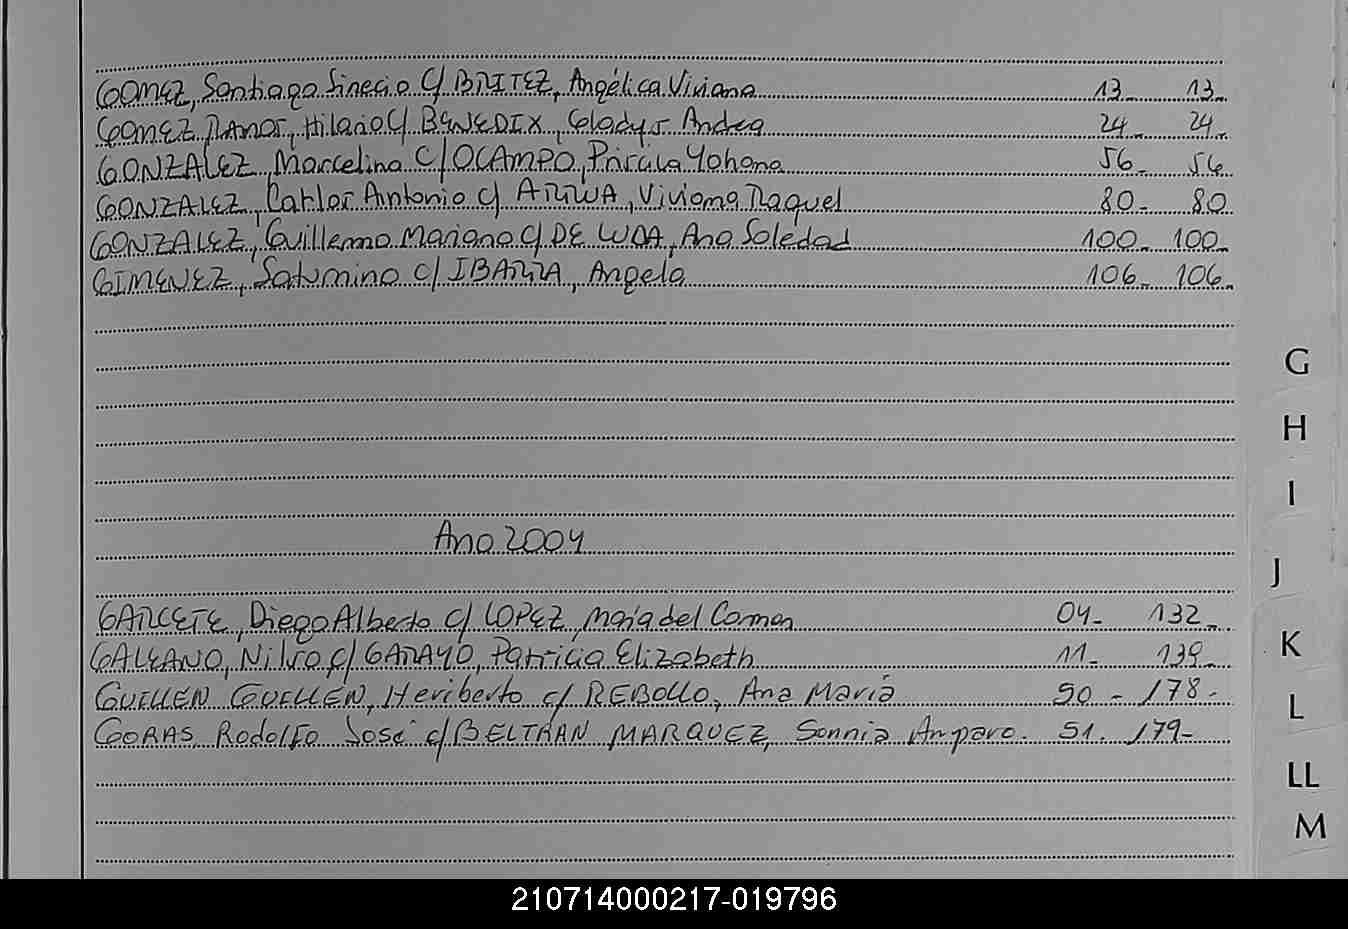 GOMEZ, Santiago Sinecio C/ BRITEZ, Angélica Viviana 13- 13-
GOMEZ RAMOS, Hilario C/ BENEDIX, Gladys Andrea 24- 24-
GONZALEZ, Marcelino C/ OCAMPO, Pricila Yohana 56- 56
GONZALEZ, Carlos Antonio c/ ARRUA, Viviana Raquel 80- 80
GONZALEZ, Guillermo Mariano c/ DE LUCA, Ana Soledad 100- 100-
GIMENEZ, Saturnino c/ IBARRA, Angela 106- 106-
G
H
I
Ano 2004
J
GARCETE, Diego Alberto c/ LOPEZ, María del Carmen 04- 132-
K
GALEANO, Nilso c/ GARAYO, Patricia Elizabeth 11- 139-
GUILLEN GUILLEN, Heriberto c/ REBOLLO, Ana María 50- 178-
L
GORAS Rodolfo José c/ BELTRAN MARQUEZ, Sonnia Amparo. 51. 179-
LL
M
210714000217-019796